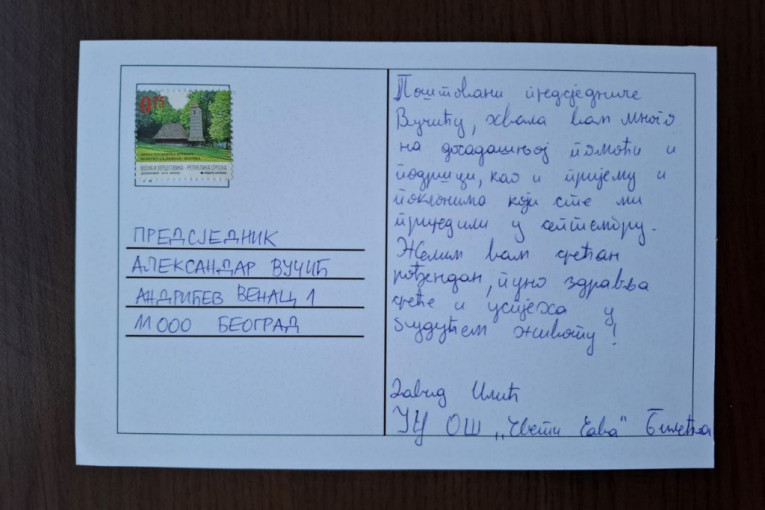 0,75
БОСНА И ХЕРЦЕГОВИНА - РЕПУБЛИКА СРПСКА
ПРЕДСЈЕДНИК
АЛЕКСАНДАР ВУЧИЋ
АНДРИЋЕВ ВЕНАЦ 1
11000 БЕОГРАД
Поштовани предсједниче
Вучићу, хвала вам много
на досадашњој помоћи и
подршци, као и пријему и
поклонима које сте ми
приредили у септембру.
Желим вам срећан
рођендан, пуно здравља
среће и успјеха у
будућем животу!
Давид Илић
ЈУ ОШ „Свети Сава" Билећа